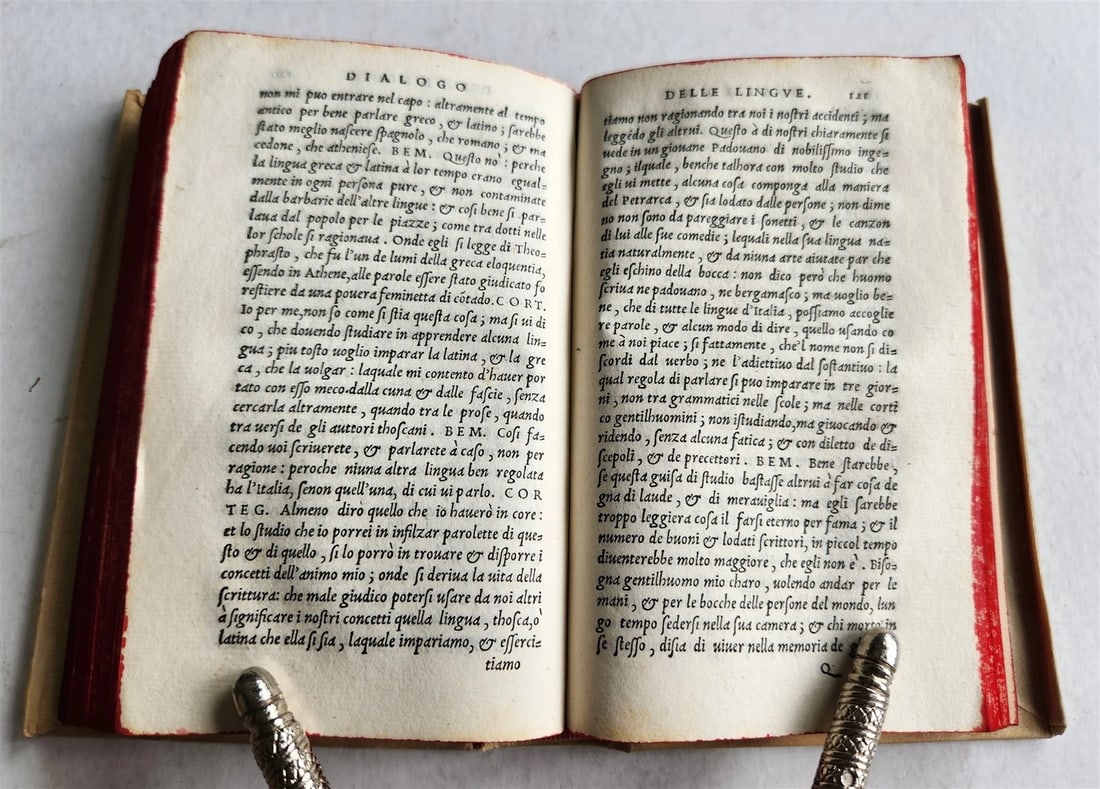 DIALOGO
non mi puo entrare nel capo : altramente al tempo
antico per bene parlare greco, & latino ; sarebbe
stato meglio nascere spagnolo, che romano ; & ma
cedone, che atheniese. BEM. Questo nò : perche
la lingua greca & latina à lor tempo erano egual=
mente in ogni persona pure, & non contaminate
dalla barbarie dell'altre lingue : & cosi bene si par=
laua dal popolo per le piazze ; come tra dotti nelle
lor schole si ragionaua. Onde egli si legge di Theo=
phrasto, che fu l'un de lumi della greca eloquentia,
essendo in Athene, alle parole essere stato giudicato fo
restiere da una pouera feminetta di cõtado. CORT.
Io per me, non so come si stia questa cosa ; ma si ui di
co, che douendo studiare in apprendere alcuna lin=
gua ; piu tosto uoglio imparar la latina, & la gre
ca, che la uolgar : laquale mi contento d'hauer por
tato con esso meco dalla cuna & dalle fascie, senza
cercarla altramente, quando tra le prose, quando
tra uersi de gli auttori thoscani. BEM. Cosi fa=
cendo uoi scriuerete, & parlarete à caso, non per
ragione : peroche niuna altra lingua ben regolata
ha l'Italia, senon quell'una, di cui ui parlo. COR
TEG. Almeno dirò quello che io hauerò in core :
et lo studio che io porrei in infilzar parolette di que=
sto & di quello, si lo porrò in trouare & disporre i
concetti dell'animo mio ; onde si deriua la uita della
scrittura: che male giudico potersi usare da noi altri
à significare i nostri concetti quella lingua, thosca, ò
latina che ella si sia, laquale impariamo, & esserci=
tiamo
DELLE LINGVE. 121
tiamo non ragionando tra noi i nostri accidenti ; ma
leggẽdo gli altrui. Questo à dì nostri chiaramente si
uede in un giouane Padouano di nobilissimo inge=
gno ; ilquale, benche talhora con molto studio che
egli ui mette, alcuna cosa componga alla maniera
del Petrarca, & sia lodato dalle persone ; non dime
no non sono da pareggiare i sonetti, & le canzon
di lui alle sue comedie ; lequali nella sua lingua na=
tia naturalmente, & da niuna arte aiutate par che
egli eschino della bocca : non dico però che huomo
scriua ne padouano, ne bergamasco ; ma uoglio be=
ne, che di tutte le lingue d'Italia, possiamo accoglie
re parole, & alcun modo di dire, quello usando co
me à noi piace ; si fattamente, che'l nome non si di=
scordi dal uerbo ; ne l'adiettiuo dal sostantiuo : la
qual regola di parlare si puo imparare in tre gior=
ni, non tra grammatici nelle scole ; ma nelle corti
co gentilhuomini ; non istudiando, ma giuocando &
ridendo, senza alcuna fatica ; & con diletto de di=
scepoli, & de precettori. BEM. Bene starebbe,
se questa guisa di studio bastasse altrui à far cosa de
gna di laude, & di merauiglia : ma egli sarebbe
troppo leggiera cosa il farsi eterno per fama ; & il
numero de buoni & lodati scrittori, in piccol tempo
diuenterebbe molto maggiore, che egli non è. Biso=
gna gentilhuomo mio charo, uolendo andar per le
mani, & per le bocche delle persone del mondo, lun
go tempo sedersi nella sua camera ; & chi morto in
se stesso, disia di uiuer nella memoria de